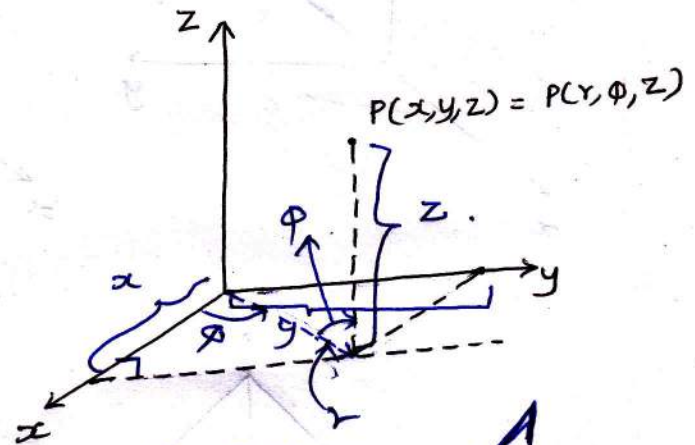 Z
P(x,y,z) = P(r, φ, z)
φ
z.
x
y
φ
y
x
r